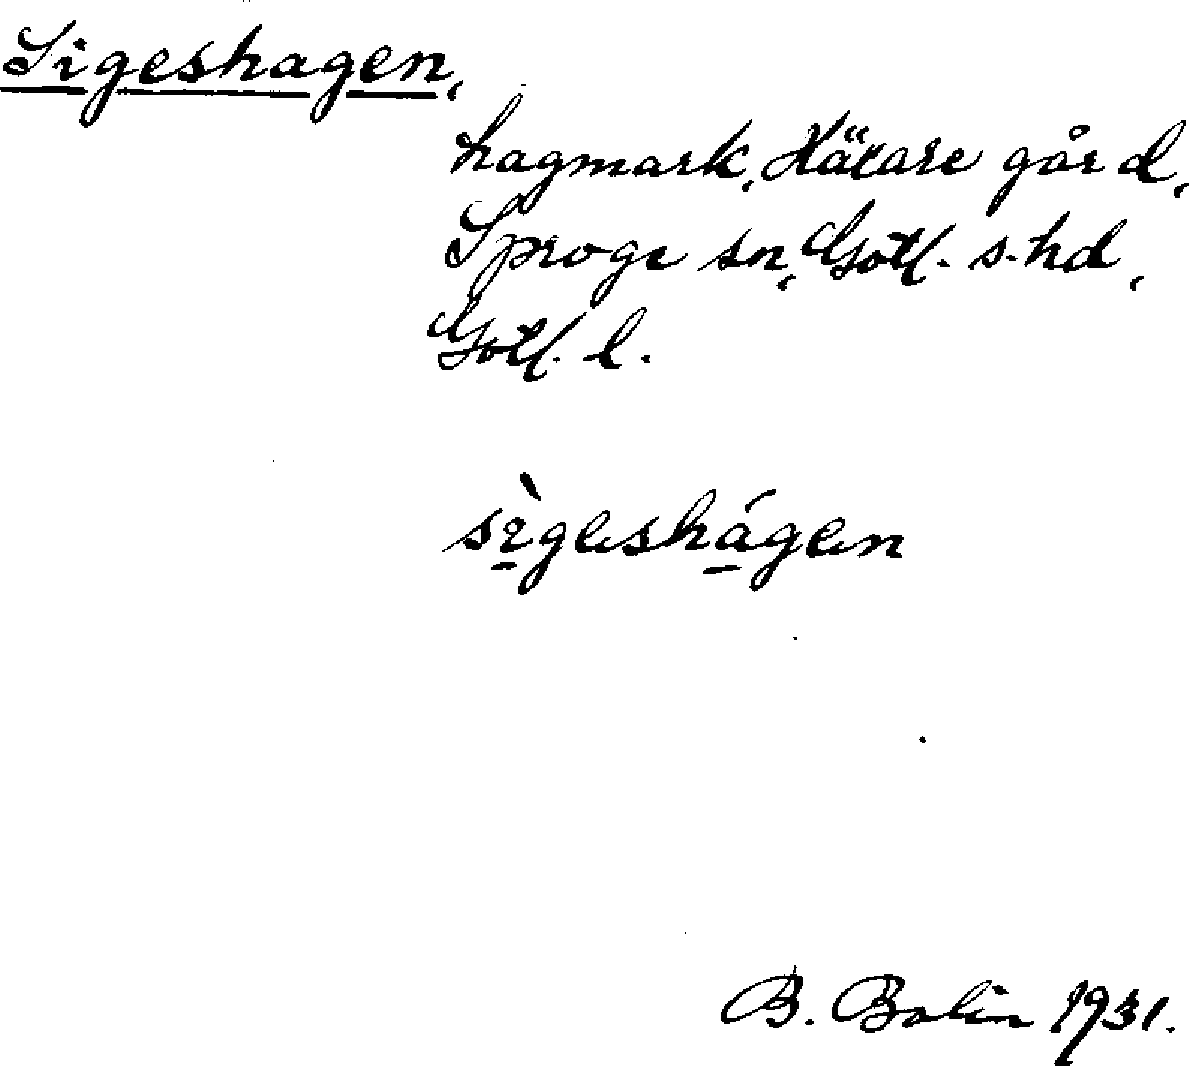 Sigeshagen,
hagmark, Hätare gård,
Sproge sn, Gotl. s. hd,
Gotl. l.
sìgeshágen
B. Bolin 1931.